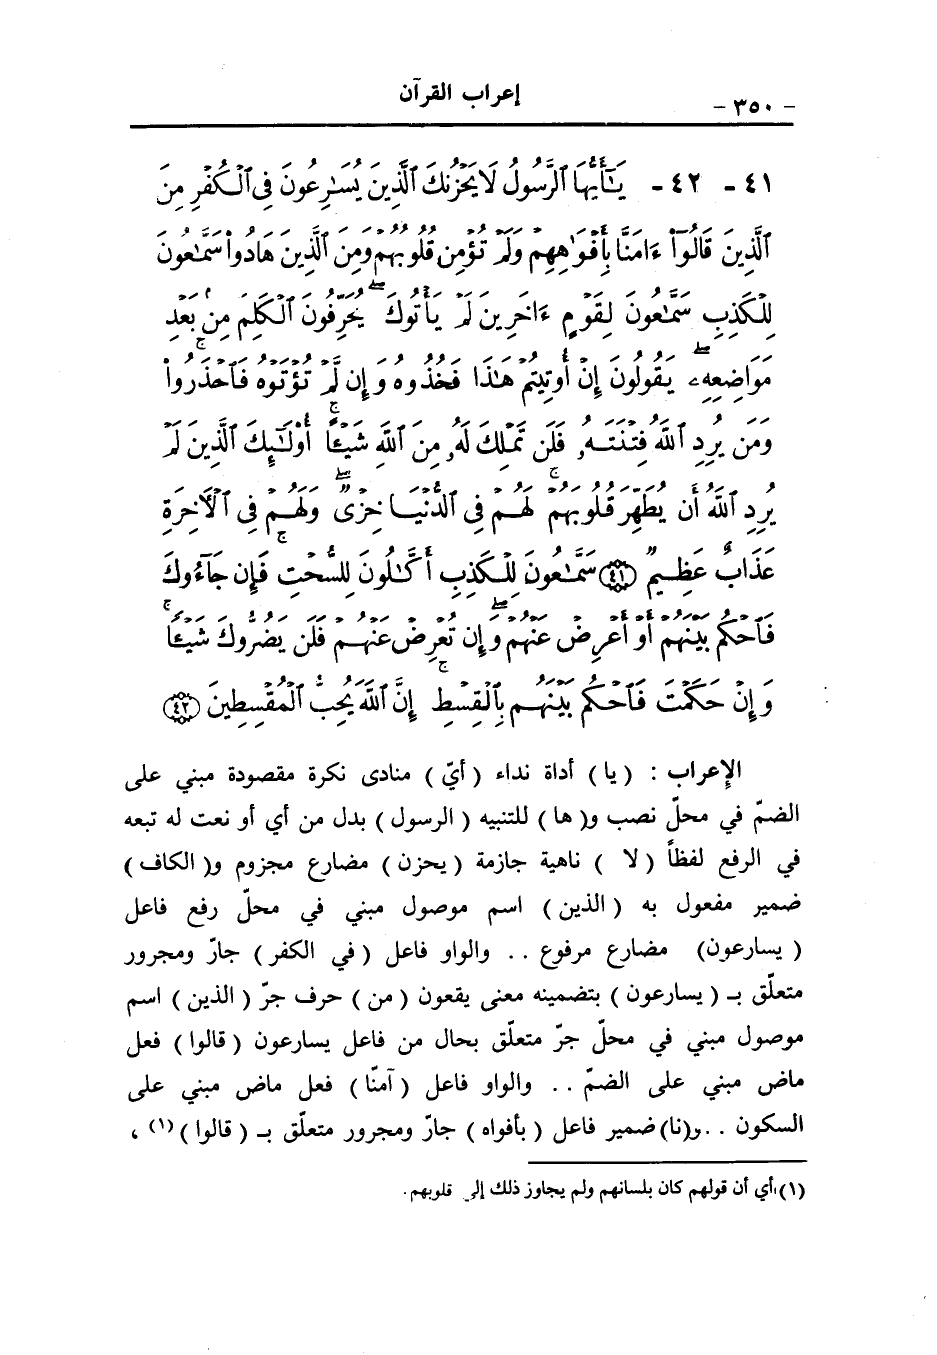 إعراب القرآن
- ٣٥٠ -
٤١ - ٤٢ - يَٰٓأَيُّهَا ٱلرَّسُولُ لَا يَحْزُنكَ ٱلَّذِينَ يُسَٰرِعُونَ فِى ٱلْكُفْرِ مِنَ
ٱلَّذِينَ قَالُوٓا۟ ءَامَنَّا بِأَفْوَٰهِهِمْ وَلَمْ تُؤْمِن قُلُوبُهُمْ وَمِنَ ٱلَّذِينَ هَادُوا۟ سَمَّٰعُونَ
لِلْكَذِبِ سَمَّٰعُونَ لِقَوْمٍ ءَاخَرِينَ لَمْ يَأْتُوكَ ۖ يُحَرِّفُونَ ٱلْكَلِمَ مِنۢ بَعْدِ
مَوَاضِعِهِۦ ۖ يَقُولُونَ إِنْ أُوتِيتُمْ هَٰذَا فَخُذُوهُ وَإِن لَّمْ تُؤْتَوْهُ فَٱحْذَرُوا۟ ۚ
وَمَن يُرِدِ ٱللَّهُ فِتْنَتَهُۥ فَلَن تَمْلِكَ لَهُۥ مِنَ ٱللَّهِ شَيْـًٔا ۚ أُو۟لَٰٓئِكَ ٱلَّذِينَ لَمْ
يُرِدِ ٱللَّهُ أَن يُطَهِّرَ قُلُوبَهُمْ ۚ لَهُمْ فِى ٱلدُّنْيَا خِزْىٌ ۖ وَلَهُمْ فِى ٱلْءَاخِرَةِ
عَذَابٌ عَظِيمٌ ﴿٤١﴾ سَمَّٰعُونَ لِلْكَذِبِ أَكَّٰلُونَ لِلسُّحْتِ ۚ فَإِن جَآءُوكَ
فَٱحْكُم بَيْنَهُمْ أَوْ أَعْرِضْ عَنْهُمْ ۖ وَإِن تُعْرِضْ عَنْهُمْ فَلَن يَضُرُّوكَ شَيْـًٔا ۖ
وَإِنْ حَكَمْتَ فَٱحْكُم بَيْنَهُم بِٱلْقِسْطِ ۚ إِنَّ ٱللَّهَ يُحِبُّ ٱلْمُقْسِطِينَ ﴿٤٢﴾
الإعراب : ( يا ) أداة نداء ( أيّ ) منادى نكرة مقصودة مبني على
الضمّ في محلّ نصب و( ها ) للتنبيه ( الرسول ) بدل من أي أو نعت له تبعه
في الرفع لفظاً ( لا ) ناهية جازمة ( يحزن ) مضارع مجزوم و( الكاف )
ضمير مفعول به ( الذين ) اسم موصول مبني في محلّ رفع فاعل
( يسارعون ) مضارع مرفوع . . والواو فاعل ( في الكفر ) جارّ ومجرور
متعلّق بـ ( يسارعون ) بتضمينه معنى يقعون ( من ) حرف جرّ ( الذين ) اسم
موصول مبني في محلّ جرّ متعلّق بحال من فاعل يسارعون ( قالوا ) فعل
ماض مبني على الضمّ . . والواو فاعل ( آمنّا ) فعل ماض مبني على
السكون . . و(نا) ضمير فاعل ( بأفواه ) جارّ ومجرور متعلّق بـ ( قالوا )(١) ،
(١) أي أن قولهم كان بلسانهم ولم يجاوز ذلك إلى قلوبهم .